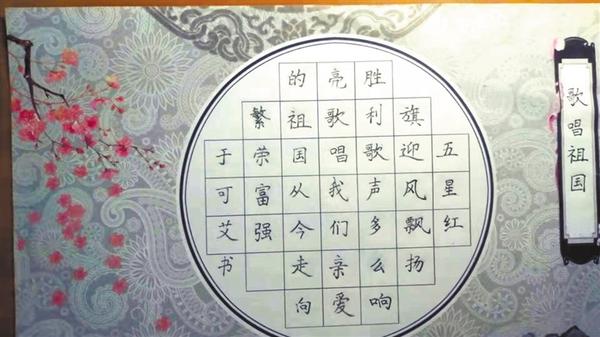 歌唱祖国
五星红
旗迎风飘扬
胜利歌声多么响
亮歌唱我们亲爱
的祖国从今走向
繁荣富强
于可艾书